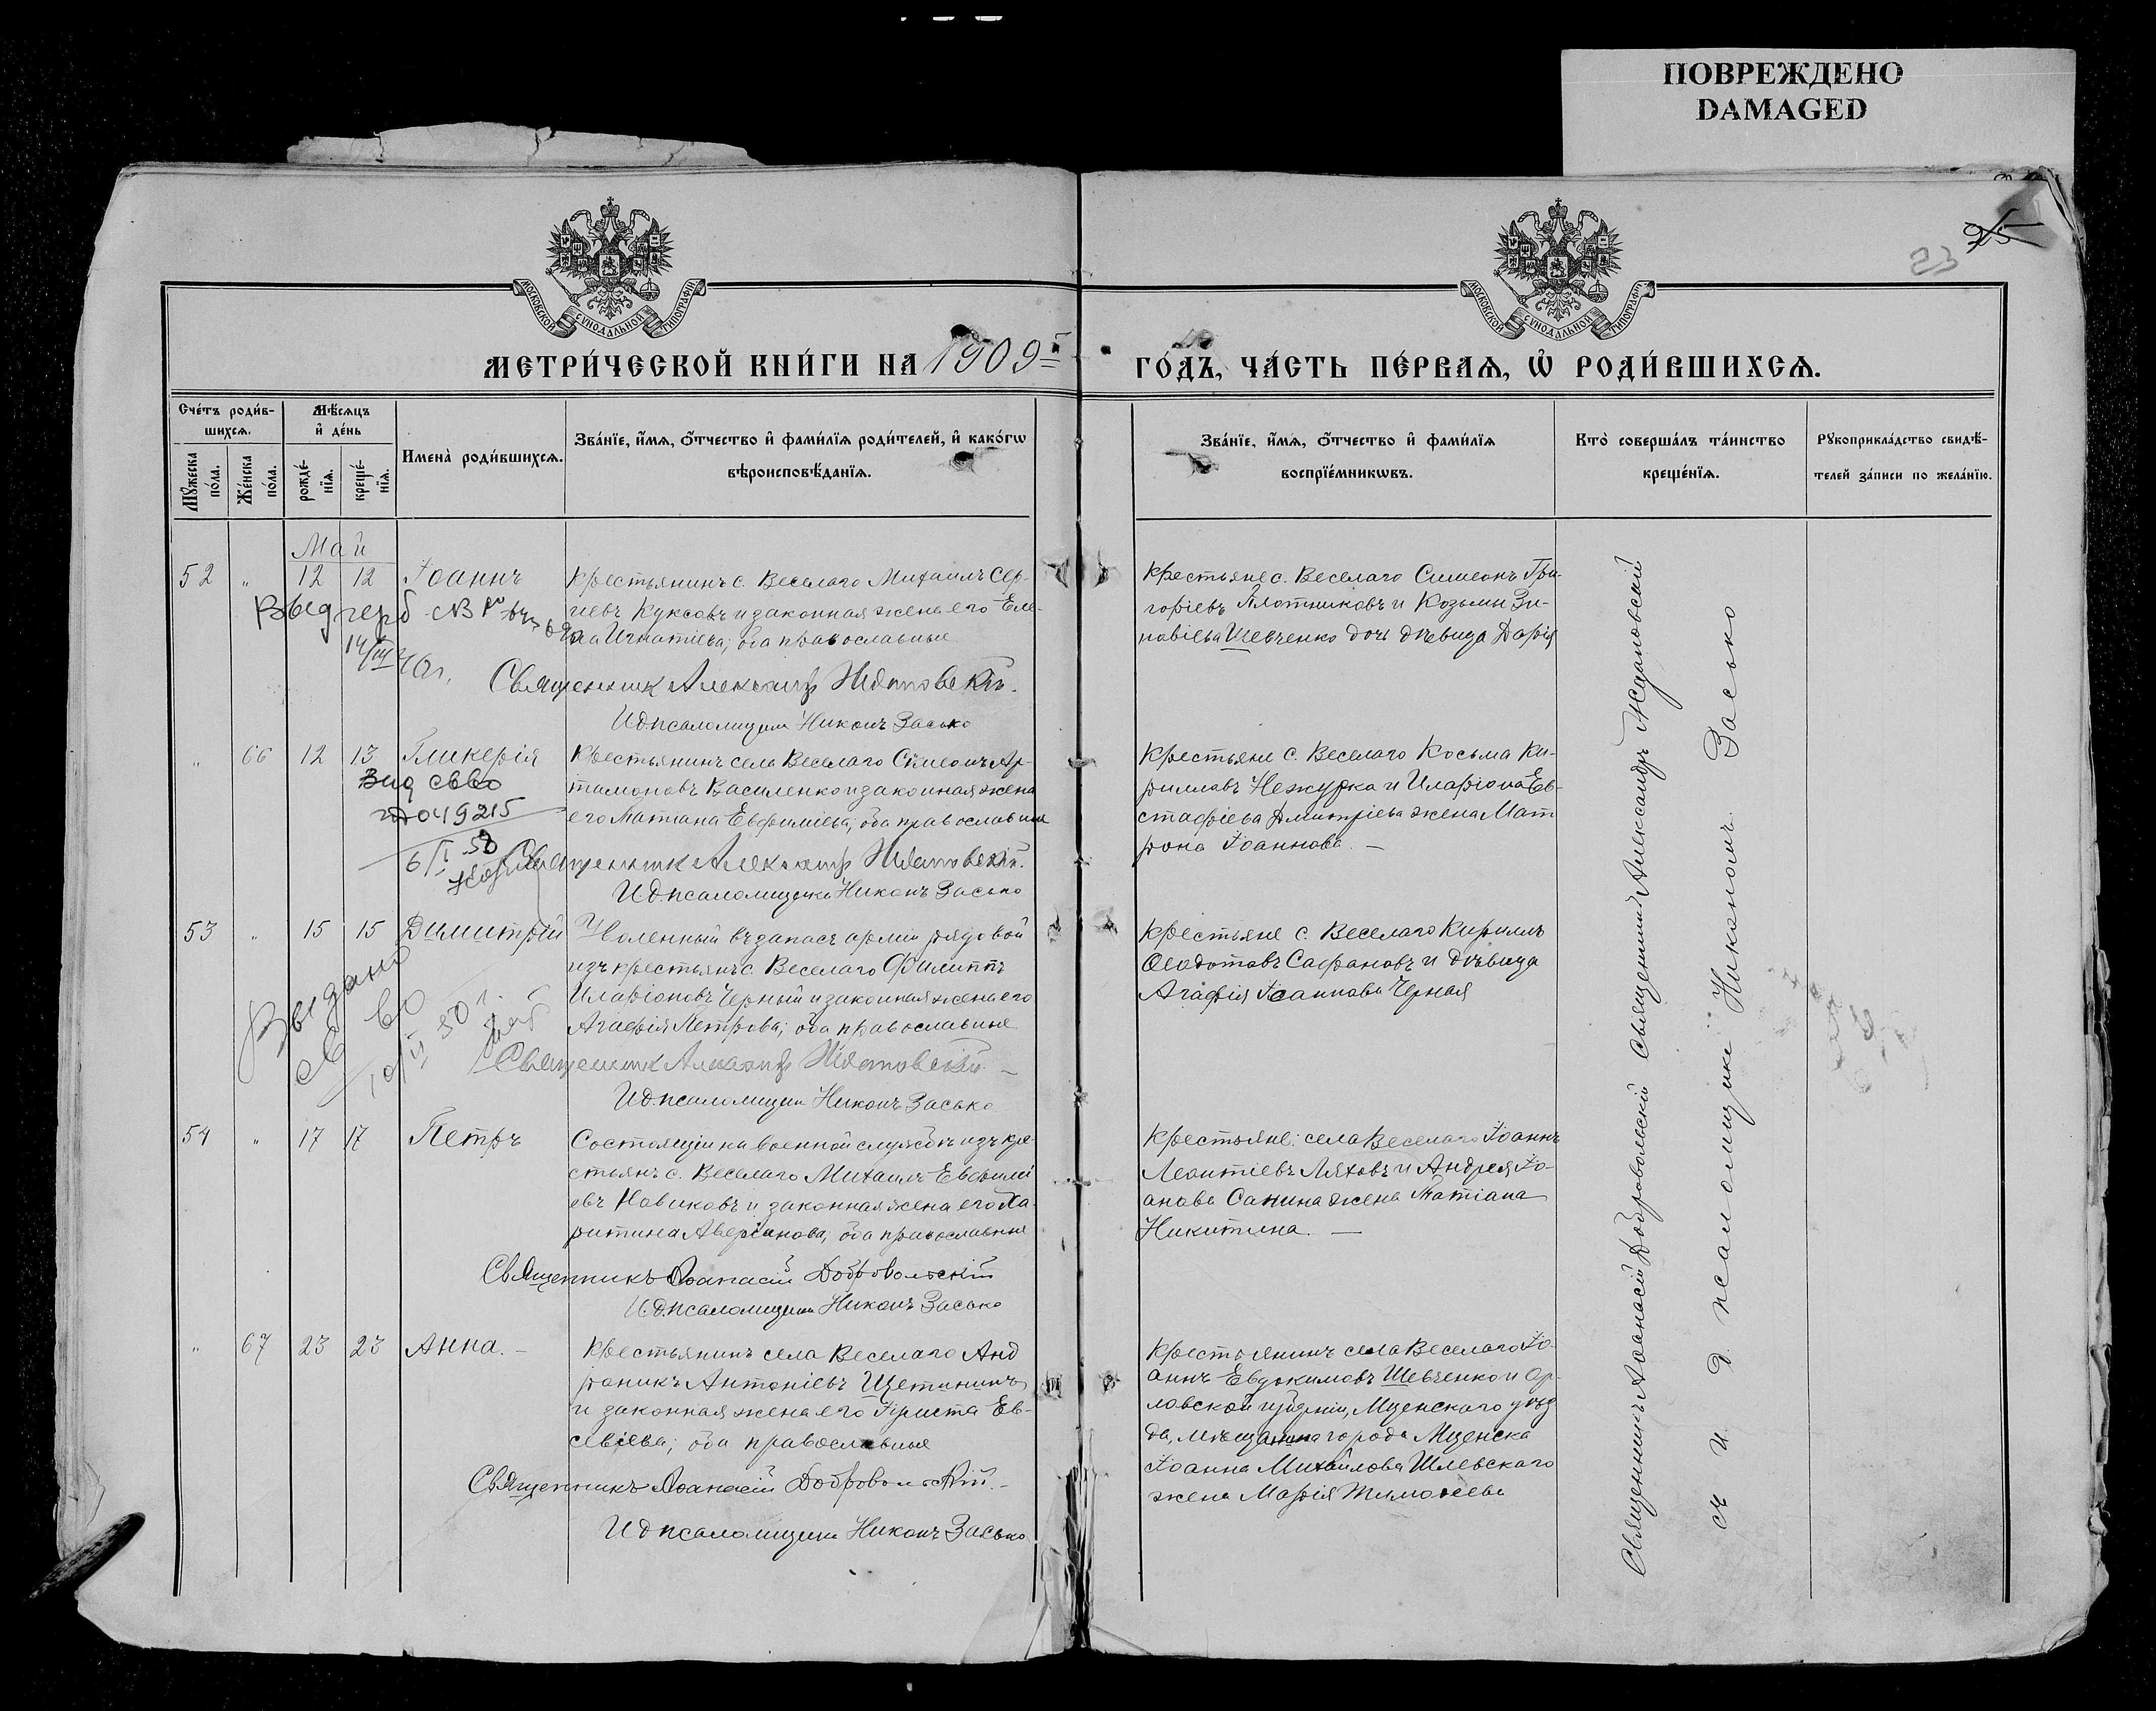 ПОВРЕЖДЕНО
DAMAGED
25
23
МОСКОВСКОЙ СѴНОДАЛЬНОЙ ТИПОГРАФІИ
МОСКОВСКОЙ СѴНОДАЛЬНОЙ ТИПОГРАФІИ
МЕТРИ́ЧЕСКОЙ КНИ́ГИ НА 1909 й
ГО́ДЪ, ЧА́СТЬ ПЕ́РВАѦ, Ѽ РОДИ́ВШИХСѦ.
Сче́тъ роди́в-
шихсѧ.
Мѣ́сѧцъ
и҆ де́нь
Мꙋ́жеска по́ла.
Же́нска по́ла.
рожде́-нїѧ.
креще́-нїѧ.
Имена̀ роди́вшихсѧ.
Зва́нїе, и҆́мѧ, ѻ҆́тчество и҆ фами́лїѧ роди́телей, и҆ како́гѡ
вѣроисповѣ́данїѧ.
Зва́нїе, и҆́мѧ, ѻ҆́тчество и҆ фами́лїѧ
воспрїе́мникѡвъ.
Кто̀ соверша́лъ та́инство
креще́нїѧ.
Рꙋкоприкла́дство свидѣ́-
телей за́писи по жела́нїю.
Май
52 " 12 12 Іоаннъ
Крестьянинъ с. Веселаго Михаилъ Сер-
гіевъ Куксовъ и законная жена его Еле-
на Игнатіева; оба православные
Священник Александр Ждановскій.
И.д. псаломщика Никонъ Засько
Крестьяне с. Веселаго Симеонъ Гри-
горіевъ Плотниковъ и Козьмы Зи-
новіева Шевченко дочь дѣвица Дарія
" 66 12 13 Гликерія
Крестьянинъ села Веселаго Сѵмеонъ Ар-
тамоновъ Василенко и законная жена
его Матіана Евфиміева; оба православные
Священник Александр Ждановскій.
И.д. псаломщика Никонъ Засько
Выд свво
049215
6/I 50
Крестьяне с. Веселаго Косьма Ки-
рилловъ Нежурка и Иларіона Ев-
стафіева Дмитріева жена Мат
рона Іоаннова. —
53 " 15 15 Димитрій
Уволенный въ запасъ арміи рядовой
изъ крестьянъ с. Веселаго Филиппъ
Иларіоновъ Черный и законная жена его
Агафія Петрова; оба православные
Священник Александр Ждановскій. —
И.д. псаломщика Никонъ Засько
Выдано
св во
Крестьяне с. Веселаго Кириллъ
Ѳеодотовъ Сафоновъ и дѣвица
Агафія Іоаннова Черная
54 " 17 17 Петръ
Состоящій на военной службѣ изъ кре-
стьянъ с. Веселаго Михаилъ Евфимі
евъ Новиковъ и законная жена его Ха-
ритина Аверіанова; оба православные
Священникъ Аѳанасій Добровольскій
И.д. псаломщика Никонъ Засько
Крестьяне: села Веселаго Іоаннъ
Леонтіевъ Ляховъ и Андрея Іо-
анова Санина жена Татіана
Никитина. —
" 67 23 23 Анна. —
Крестьянинъ села Веселаго Анд
роникъ Антоніевъ Щетининъ
и законная жена его Христа Ев-
севіева; оба православные
Священникъ Аѳанасій Добровольскій. —
И д псаломщика Никонъ Засько
Крестьянинъ села Веселаго Іо-
аннъ Евдокимовъ Шевченко и Ор-
ловской губерніи, Мценскаго уѣз
да, мѣщанина города Мценска
Іоанна Михайлова Шлевскаго
жена Марія Тимоѳеева
Священникъ Аѳанасій Добровольскій Священникъ Александръ Ждановскій
съ И. д. псаломщика Никономъ Засько